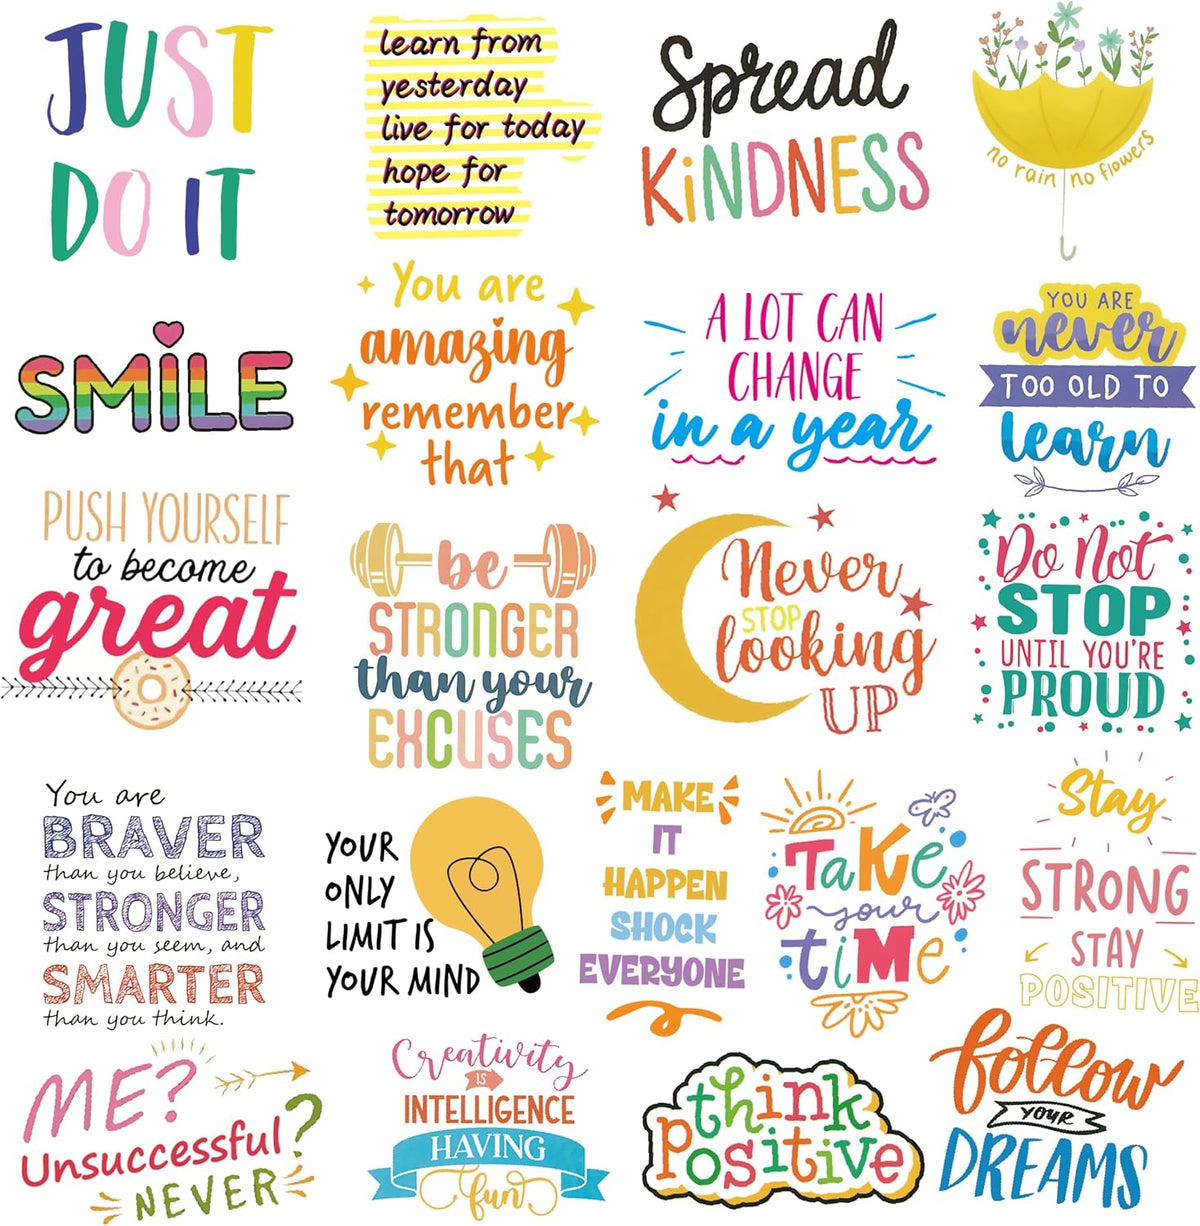 JUST
DO IT
learn from
yesterday
live for today
hope for
tomorrow
Spread
KiNDNESS
no rain no flowers
SMiLE
You are
amazing
remember
that
A LOT CAN
CHANGE
in a year
YOU ARE
never
TOO OLD TO
learn
PUSH YOURSELF
to become
great
be
STRONGER
than your
EXCUSES
Never
STOP
looking
UP
Do Not
STOP
UNTIL YOU'RE
PROUD
You are
BRAVER
than you believe,
STRONGER
than you seem, and
SMARTER
than you think.
YOUR
ONLY
LIMIT IS
YOUR MIND
MAKE
IT
HAPPEN
SHOCK
EVERYONE
TaKe
your
tiMe
Stay
STRONG
STAY
POSITIVE
ME?
Unsuccessful?
NEVER
Creativity
IS
INTELLIGENCE
HAVING
fun
think
Positive
follow
YOUR
DREAMS